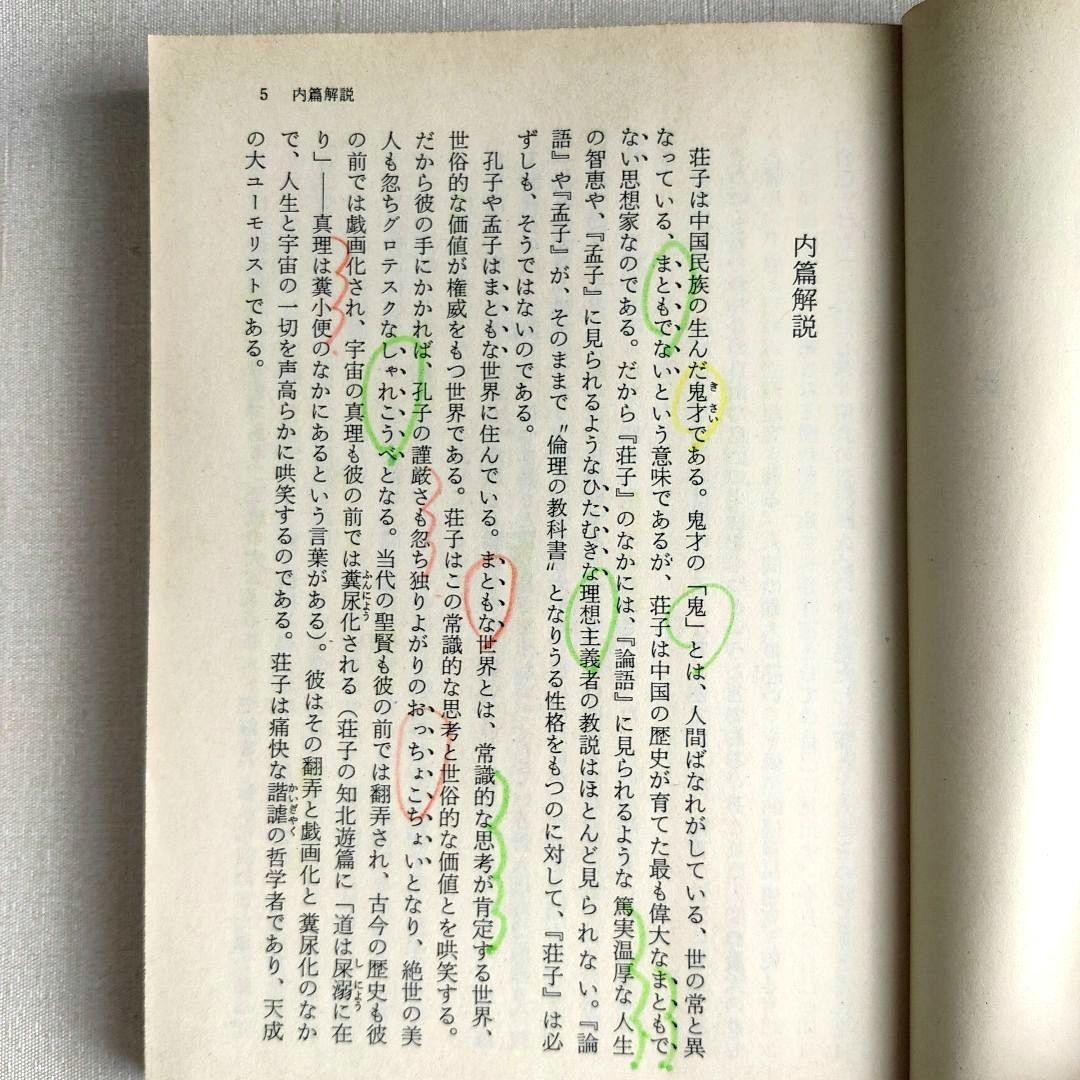 5 内篇解説
内篇解説
荘子は中国民族の生んだ鬼才である。鬼才の「鬼」とは、人間ばなれがしている、世の常と異
なっている、まともでないという意味であるが、荘子は中国の歴史が育てた最も偉大なまともで
ない思想家なのである。だから『荘子』のなかには、『論語』に見られるような篤実温厚な人生
の智恵や、『孟子』に見られるようなひたむきな理想主義者の教説はほとんど見られない。『論
語』や『孟子』が、そのままで〝倫理の教科書〟となりうる性格をもつのに対して、『荘子』は必
ずしも、そうではないのである。
孔子や孟子はまともな世界に住んでいる。まともな世界とは、常識的な思考が肯定する世界、
世俗的な価値が権威をもつ世界である。荘子はこの常識的な思考と世俗的な価値とを哄笑する。
だから彼の手にかかれば、孔子の謹厳さも忽ち独りよがりのおっちょこちょいとなり、絶世の美
人も忽ちグロテスクなしゃれこうべとなる。当代の聖賢も彼の前では翻弄され、古今の歴史も彼
の前では戯画化され、宇宙の真理も彼の前では糞尿化される（荘子の知北遊篇に「道は屎溺に在
り」――真理は糞小便のなかにあるという言葉がある）。彼はその翻弄と戯画化と糞尿化のなか
で、人生と宇宙の一切を声高らかに哄笑するのである。荘子は痛快な諧謔の哲学者であり、天成
の大ユーモリストである。